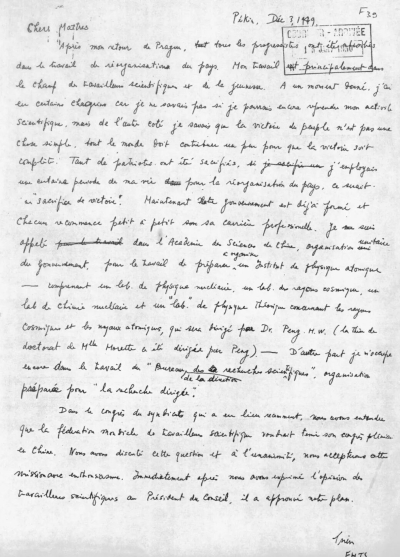 Pékin, Déc 3, 1949, F39
Chers Maîtres
COURRIER - ARRIVÉE
"Après mon retour de Prague, tous les progressistes ont été absorbés
dans le travail de réorganisation du pays. Mon travail est principalement dans
le champ du travailleurs scientifiques et de la jeunesse. A un moment donné, j'ai
eu certains chagrins car je ne savais pas si je pourrais encore reprendre mon activité
scientifique, mais de l'autre coté je savais que la victoire du peuple n'est pas une
chose simple, tout le monde doit contribuer un peu pour que la victoire soit
complète. Tant de patriotes ont été sacrifiés, si j'employais
un certaine periode de ma vie pour la réorganisation du pays, ce serait
un "sacrifice de victoire". Maintenant le gouvernement est déjà formé et
chacun recommence petit à petit son sa carrière professionelle. Je suis
appelé dans l'Académie des Sciences de Chine, organisation unitaire
du Gouvernement, pour le travail de préparer à organiser un Institut de physique atomique
— comprenant un lab. de physique nucléaire, un lab. des rayons cosmiques, un
lab de Chimie nucléaire et un "lab." de physique théorique concernant les rayons
cosmiques et les noyaux atomiques, qui sera dirigé par Dr. Peng H.W. (la thèse de
doctorat de Mlle Morette a été dirigée par Peng) — D'autre part je m'occupe
encore dans le travail du "Bureau de la direction de recherches scientifiques", organisation
préparée pour "la recherche dirigée".
Dans le congrès du syndicats qui a eu lieu récemment, nous avons entendu
que la fédération mondiale de travailleurs scientifiques voudrait tenir son congrès plénier
en Chine. Nous avons discuté cette question et à l'unanimité, nous acceptons cette
mission avec enthousiasme. Immédiatement après nous avons exprimé l'opinion des
travailleurs scientifiques au Président du Conseil, il a approuvé notre plan.